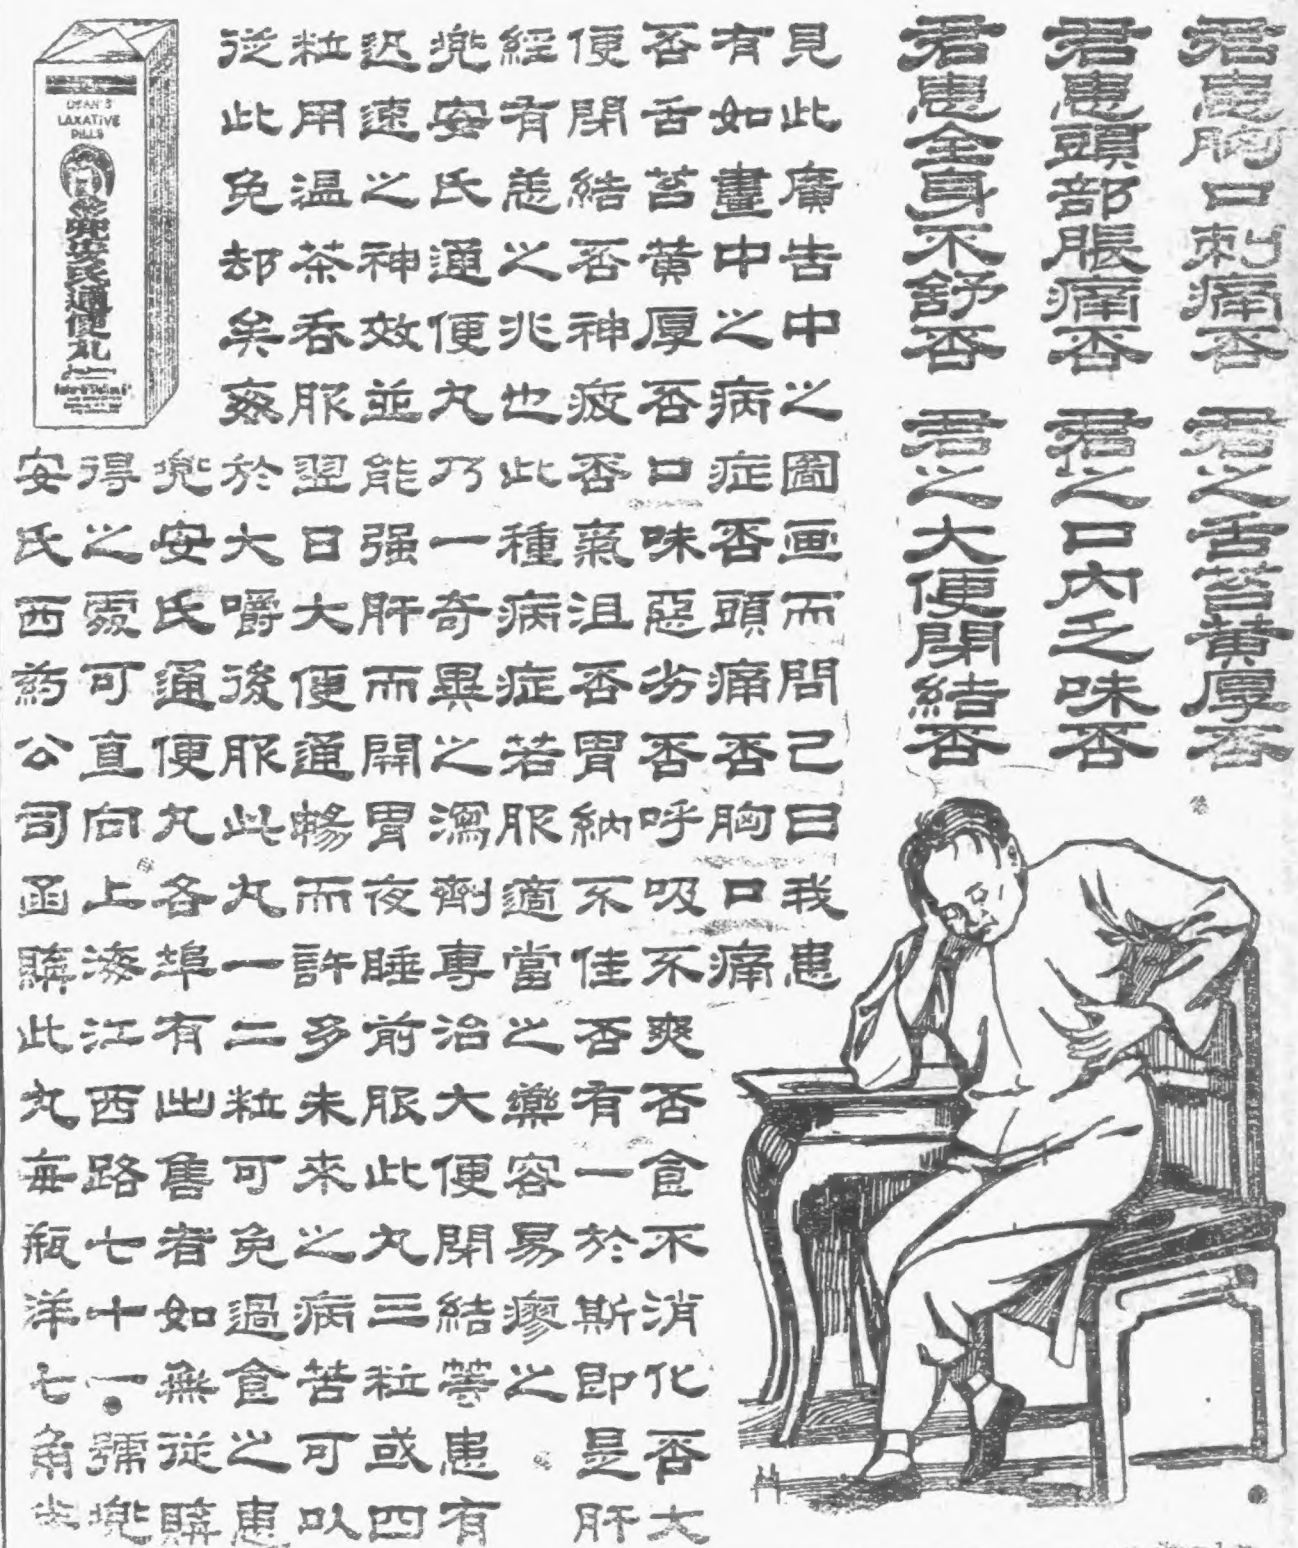 君患胸口刺痛否
君之舌苔黄厚否
君患頭部脹痛否
君之口內乏味否
君患全身不舒否
君之大便閉結否
見此廣告中之圖画而問己曰我患
有如畫中之病症否頭痛否胸口痛
否舌苔黄厚否口味惡劣否呼吸不爽否食不消化否大
便閉結否神疲否氣沮否胃納不佳否有一於斯即是肝
經有恙之兆也此種病症若服適當之藥容易瘳之
兠安氏通便丸乃一奇異之瀉劑專治大便閉結等患有
迅速之神效並能强肝而開胃夜睡前服此丸三粒或四
粒用温茶吞服翌日大便通暢而許多未來之病苦可以
從此免却矣
於大嚼後服此丸一二粒可免過食之患
兠安氏通便丸各埠有出售者如無從購
得之處可直向上海江西路七十一號兠
安氏西药公司函購此丸每瓶洋七角
DEAN'S
LAXATIVE
PILLS
兠安氏通便丸